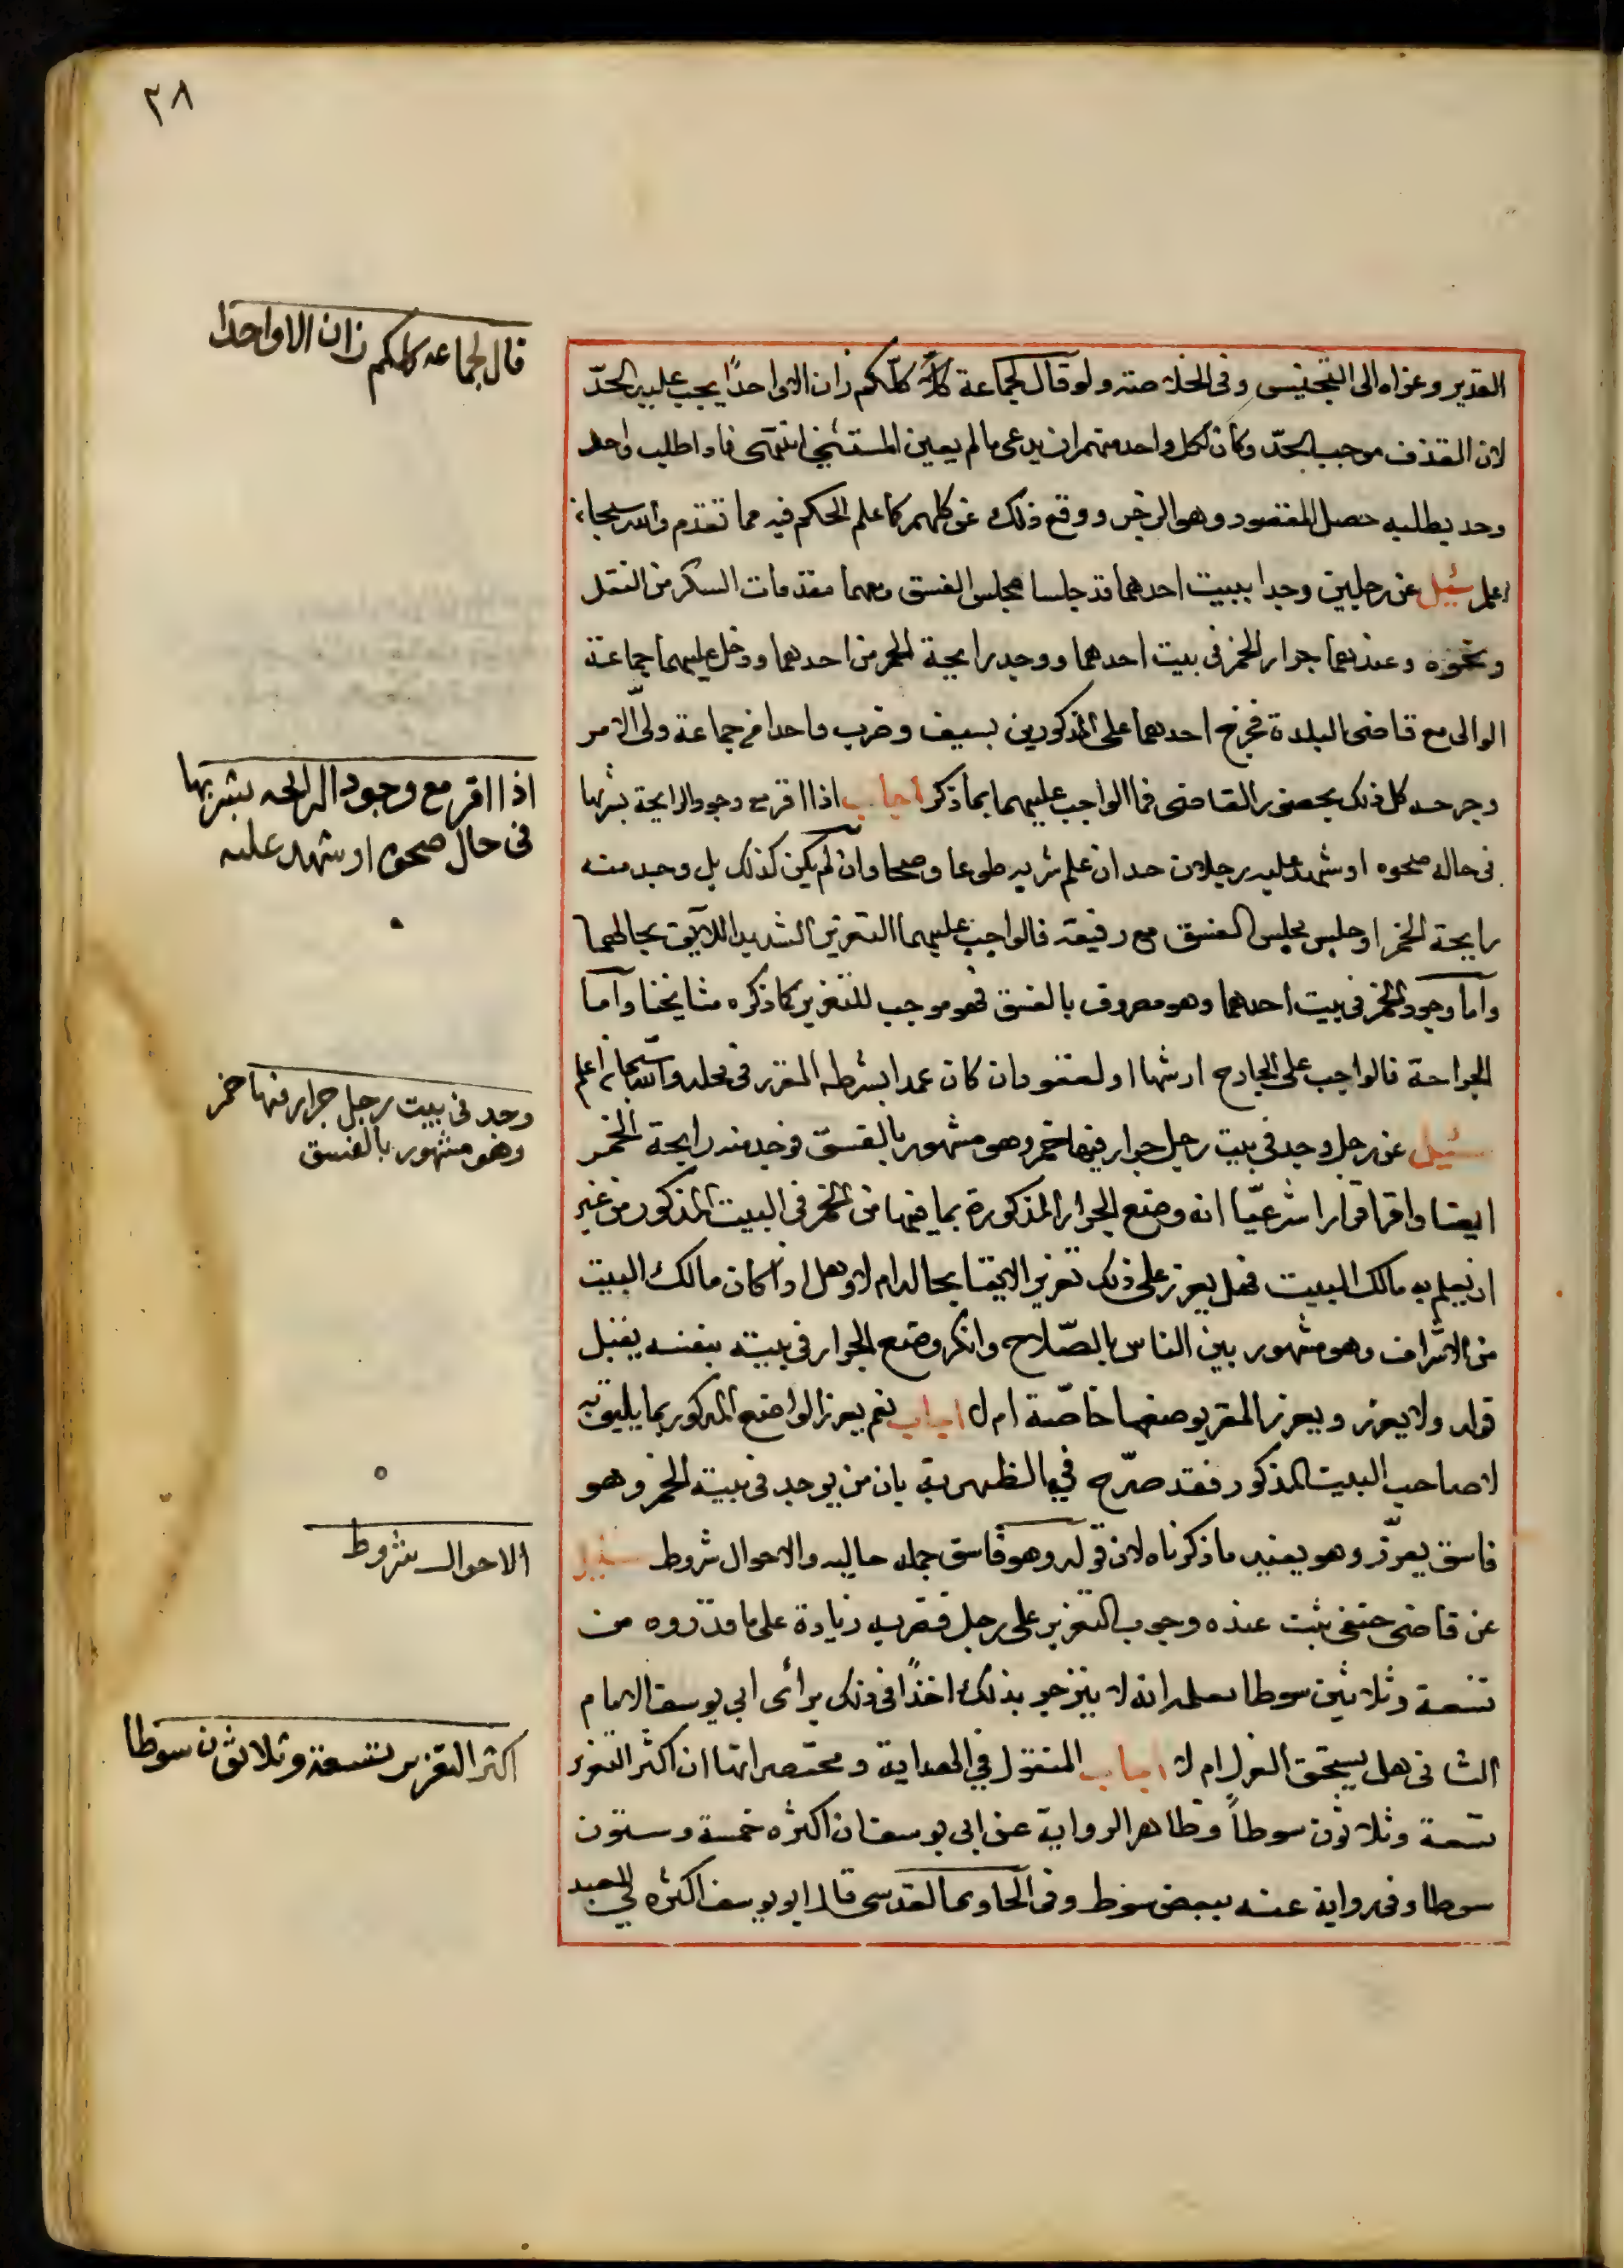 ٢٨
القدير وعزاه الى التجنيس وفى الخلاصة ولو قال لجماعة كلكم زان الا واحدًا يجب عليه الحدّ
لان القذف موجب الحدّ وكان لكل واحد منهم ان يدعى ما لم يعين المستثنى انتهى فاذا طلب واحد
وحد بطلبه حصل المقصود وهو الزجر ووقع ذلك عن كلهم كما علم الحكم فيه مما تقدم والله سبحانه
اعلم سئيل عن رجلين وجدا ببيت احدهما قد جلسا مجلس الفسق ومعهما مقدمات السكر من النقل
ونحوه وعندهما جرار الخمر فى بيت احدهما ووجد رايحة الخمر من احدهما ودخل عليهما جماعة
الوالى مع قاضى البلدة فخرج احدهما على المذكورين بسيف وضرب واحدا من جماعة ولىّ الامر
وجرحه كل ذلك بحضور القاضى فما الواجب عليهما بما ذكر اجاب اذا اقر مع وجود الرايحة بشربها
فى حالة صحوه او شهد عليه رجلان حد ان علم شربه طوعا وصحا وان لم يكن كذلك بل وجد منه
رايحة الخمر او جلس مجلس الفسق مع رفيقه فالواجب عليهما التعزير الشديد اللايق بحالهما
واما وجود الخمر فى بيت احدهما وهو معروف بالفسق فهو موجب للتعزير كما ذكره مشايخنا واما
الجراحة فالواجب على الجارح ارشها او القود ان كان عمدا بشرطه المقرر فى محله والله سبحانه اعلم
سئيل عن رجل وجد فى بيت رجل جرار فيها خمر وهو مشهور بالفسق فوجد منه رايحة الخمر
ايضا واقر اقرارا شرعيّا انه وضع الجرار المذكورة بما فيها من الخمر فى البيت المذكور من غير
ان يعلم به مالك البيت فهل يعزر على ذلك تعزير الايقا بحاله ام لا وهل اذا كان مالك البيت
من الاشراف وهو مشهور بين الناس بالصّلاح وانكر وضع الجرار فى بيته بنفسه يقبل
قوله ولا يعزر ويعزر المقر بوضعها خاصّة ام لا اجاب نعم يعزر الواضع المذكور بما يليق به
لا صاحب البيت المذكور فقد صرّح في الظهيرية بان من يوجد فى بيته الخمر وهو
فاسق يعزّر وهو يفيد ما ذكرناه لان قوله وهو فاسق جملة حالية والاحوال شروط سئيل
عن قاضى حنفى ثبت عنده وجوب التعزير على رجل فضربه زيادة على ما قدروه من
تسعة وثلاثين سوطا لعلمه انه لا ينزجر بذلك اخذًا فى ذلك برأى ابي يوسف الامام
الثانى هل يستحق العزل ام لا اجاب المنقول في الهداية ومختصراتها ان اكثر التعزير
تسعة وثلاثون سوطاً وظاهر الرواية عن ابى يوسف ان اكثره خمسة وستون
سوطا وفى رواية عنه ببعض سوط وفى الحاوى القدسى قال ابو يوسف اكثره في العبد
قال لجماعه كلكم زان الا واحدا
اذا اقر مع وجود الرايحه بشربها
فى حال صحوه او شهد عليه
وجد فى بيت رجل جرار فيها خمر
وهو مشهور بالفسق
الاحوال شروط
اكثر التعزير تسعة وثلاثون سوطا